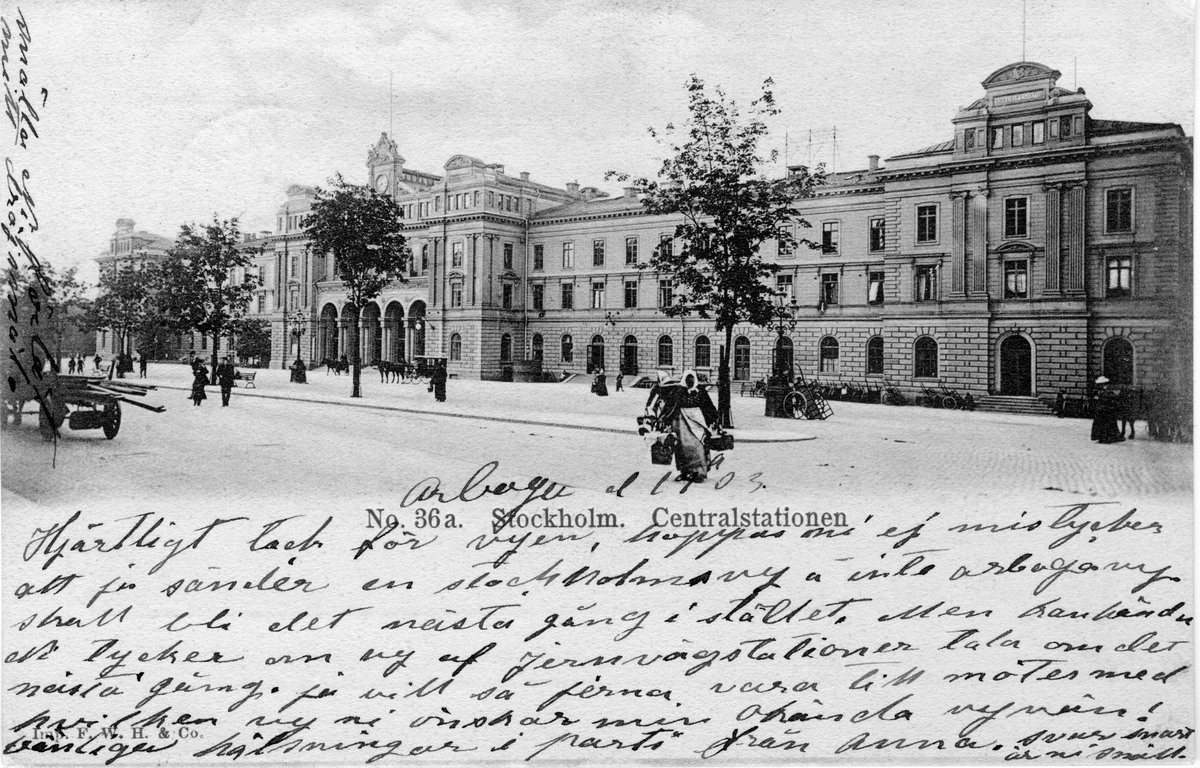 Arboga d 1/9 03.
No. 36a. Stockholm. Centralstationen
Hjärtligt tack för vyen, hoppas ni ej mistycker
att ja sänder en stockholmsvy å inte arbogavy.
skall bli det nästa gång i stället. Men kanhända
ni tycker om vy af Jernvägstationer tala om det
nästa gång. ja vill så jerna vara till mötes med
hvilken vy ni önskar min okända vyvän!
Imp. F. W. H. & Co.
vänliga hälsningar i parti från Anna. svar snart
är ni snäll.